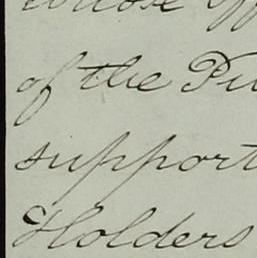 whose
of the Pu
support
Holders